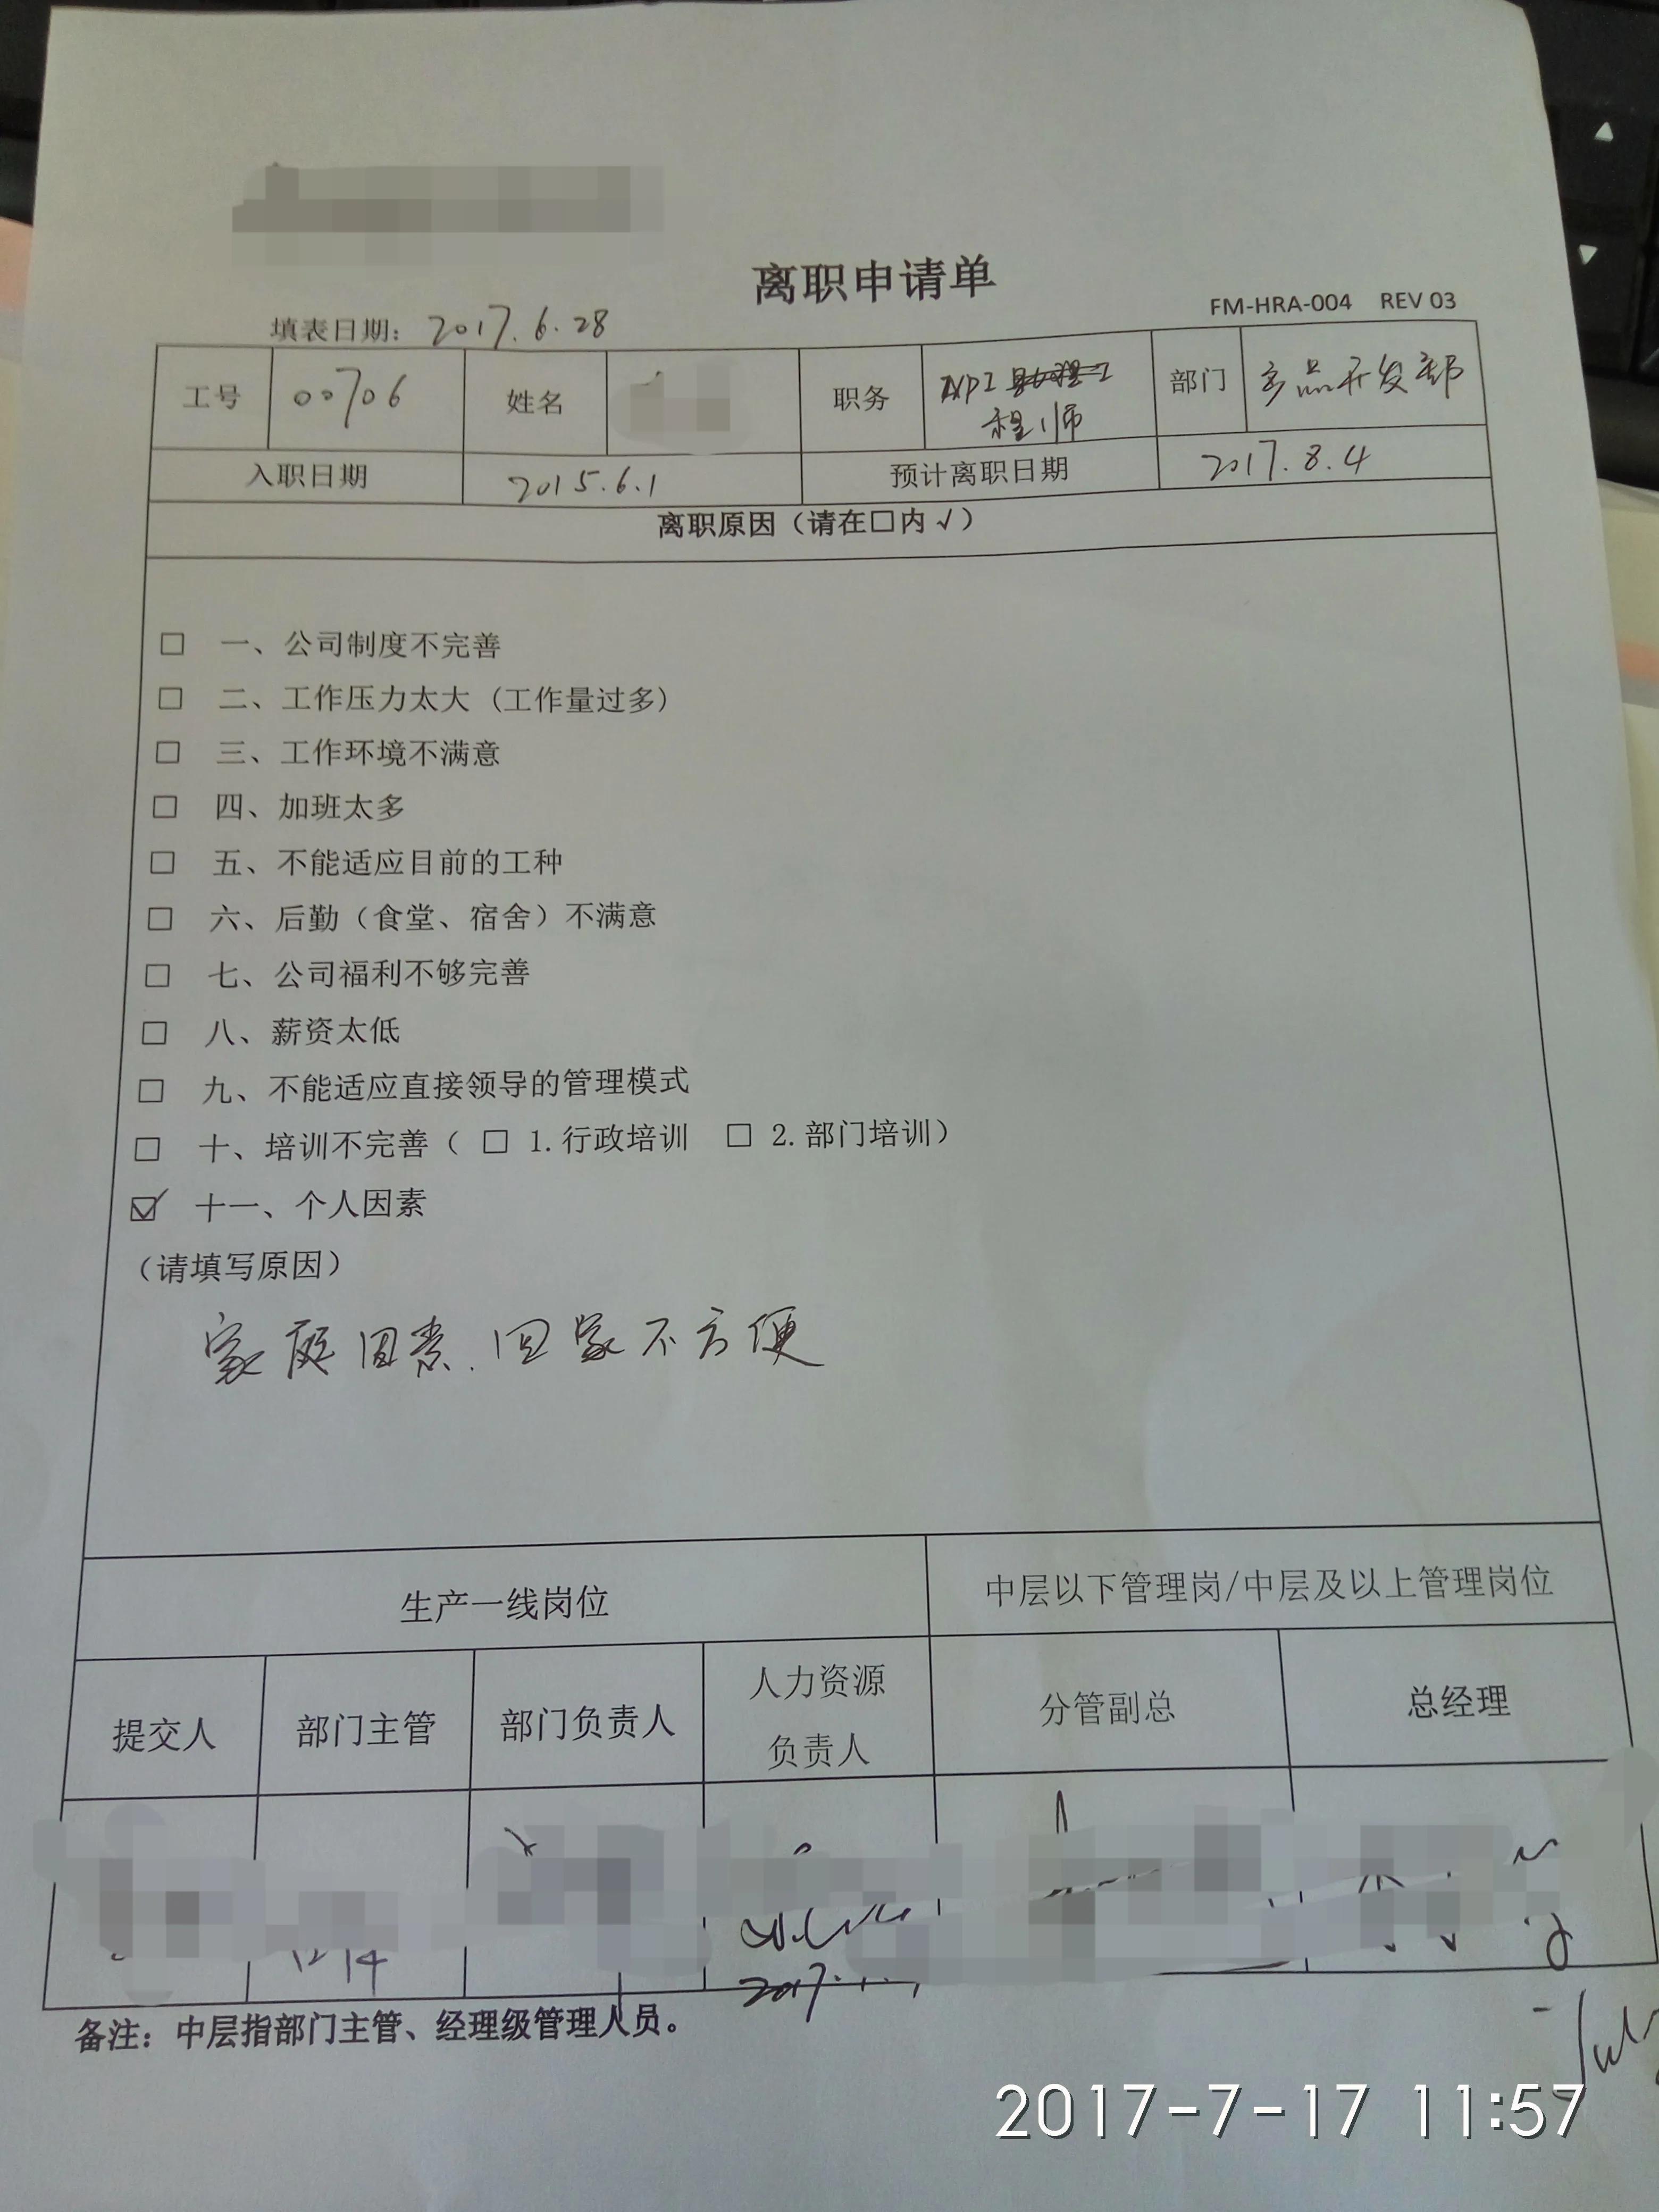 离职申请单
FM-HRA-004 REV 03
填表日期：2017.6.28
工号 00706 姓名 职务 NPI 工程师 部门 产品开发部
入职日期 2015.6.1 预计离职日期 2017.8.4
离职原因（请在□内√）
□ 一、公司制度不完善
□ 二、工作压力太大 (工作量过多)
□ 三、工作环境不满意
□ 四、加班太多
□ 五、不能适应目前的工种
□ 六、后勤（食堂、宿舍）不满意
□ 七、公司福利不够完善
□ 八、薪资太低
□ 九、不能适应直接领导的管理模式
□ 十、培训不完善（ □ 1.行政培训 □ 2.部门培训）
☑ 十一、个人因素
（请填写原因）
家庭因素.回家不方便
生产一线岗位 中层以下管理岗/中层及以上管理岗位
提交人 部门主管 部门负责人 人力资源负责人 分管副总 总经理
2017
备注：中层指部门主管、经理级管理人员。
2017-7-17 11:57